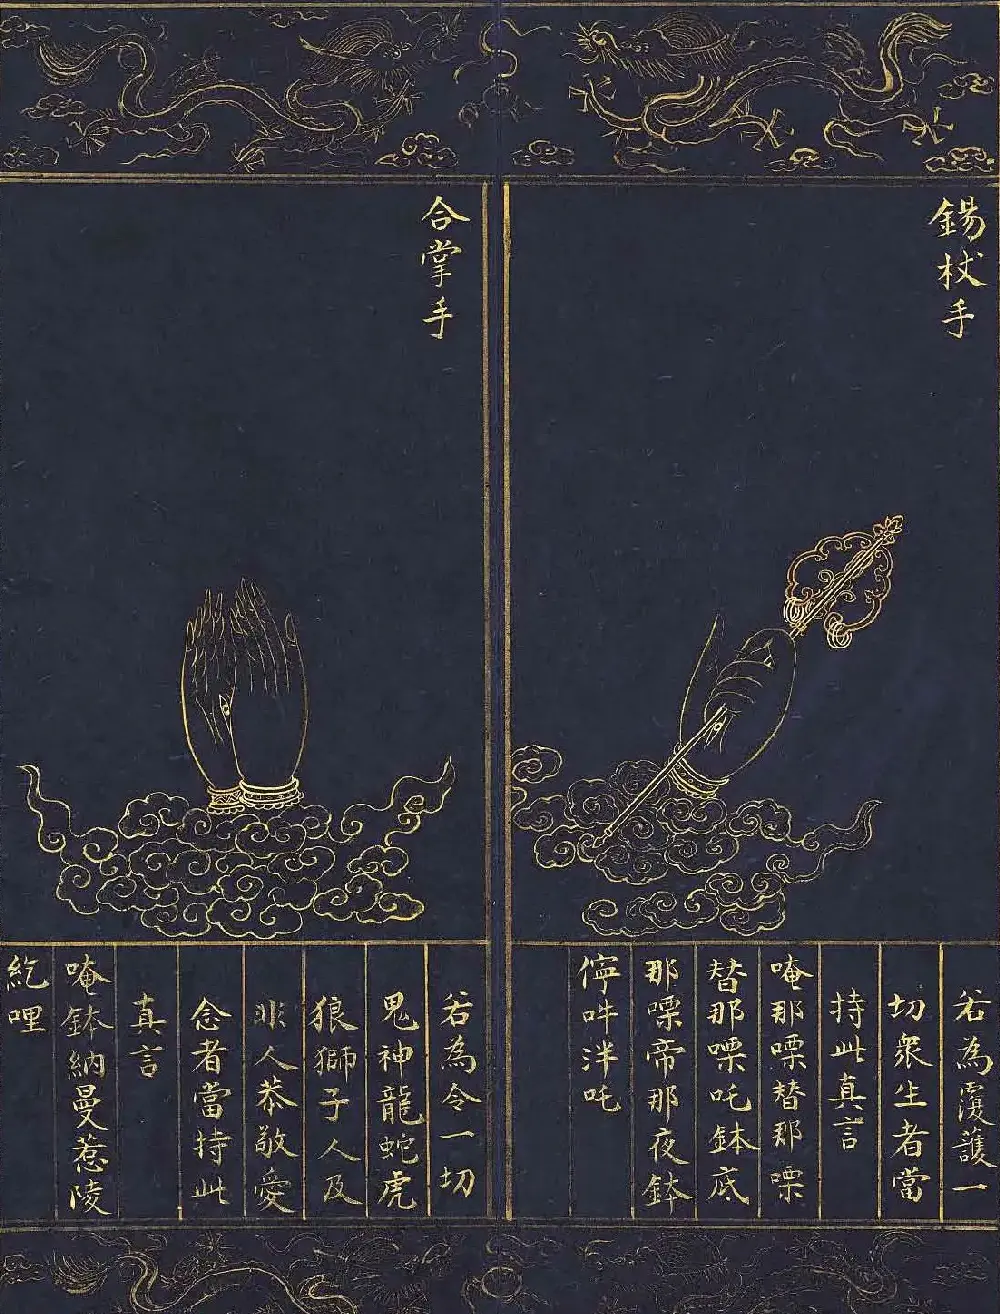 錫杖手
若為覆護一
切衆生者當
持此真言
唵那㗚替那㗚
替那㗚吒鉢底
那㗚帝那夜鉢
儜吽泮吒
合掌手
若為令一切
鬼神龍蛇虎
狼獅子人及
非人恭敬愛
念者當持此
真言
唵鉢納曼惹陵
紇哩